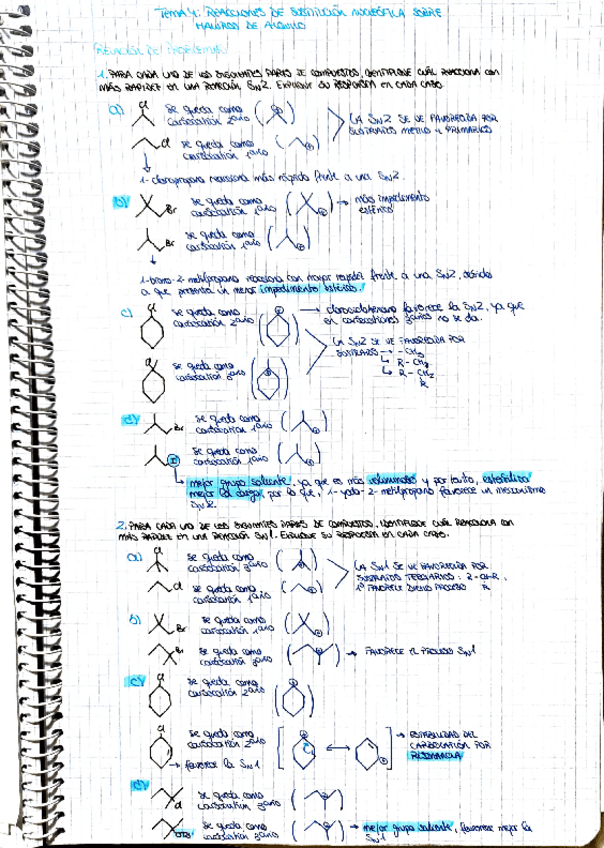 TEMA 4: REACCIONES DE SUSTITUCIÓN NUCLEÓFILA SOBRE
HALUROS DE ALQUILO
RELACIÓN DE PROBLEMAS
1. PARA CADA UNO DE LOS SIGUIENTES PARES DE COMPUESTOS, IDENTIFIQUE CUÁL REACCIONA CON
MÁS RAPIDEZ EN UNA REACCIÓN SN2. EXPLIQUE SU RESPUESTA EN CADA CASO.
a) Cl se queda como
carbocatión 2ario
LA SN2 SE VE FAVORECIDA POR
SUSTRATOS METILO Y PRIMARIOS
Cl se queda como
carbocatión 1ario
1-cloropropano reacciona más rápido frente a una SN2.
b) Br se queda como
carbocatión 1ario
más impedimento
estérico
Br se queda como
carbocatión 1ario
1-bromo-2-metilpropano reacciona con mayor rapidez frente a una SN2, debido
a que presenta un menor impedimento estérico.
c) Cl se queda como
carbocatión 2ario
clorociclohexano favorece la SN2, ya que
en carbocationes 3arios no se da.
Cl se queda como
carbocatión 3ario
LA SN2 SE VE FAVORECIDA POR
SUSTRATOS → -CH3
R-CH2
R-CH2
R
d) Br se queda como
carbocatión 1ario
I se queda como
carbocatión 1ario
mejor grupo saliente, ya que es más voluminoso y por tanto, estabiliza
mejor la carga, por lo que, 1-yodo-2-metilpropano favorece un mecanismo
SN2.
2. PARA CADA UNO DE LOS SIGUIENTES PARES DE COMPUESTOS, IDENTIFIQUE CUÁL REACCIONA CON
MÁS RAPIDEZ EN UNA REACCIÓN SN1. EXPLIQUE SU RESPUESTA EN CADA CASO.
a) Cl se queda como
carbocatión 3ario
LA SN1 SE VE FAVORECIDA POR
SUSTRATOS TERCIARIOS: R-CH-R,
R
1º FAVORECE DICHO PROCESO
Cl se queda como
carbocatión 1ario
b) Br se queda como
carbocatión 1ario
Br se queda como
carbocatión 3ario
→ FAVORECE EL PROCESO SN1
c) Cl se queda como
carbocatión 2ario
Cl se queda como
carbocatión 2ario
→ favorece la SN1
→ ESTABILIDAD DEL
CARBOCATIÓN POR
RESONANCIA
d) Cl se queda como
carbocatión 3ario
OTs se queda como
carbocatión 3ario
→ mejor grupo saliente, favorece mejor la
SN1